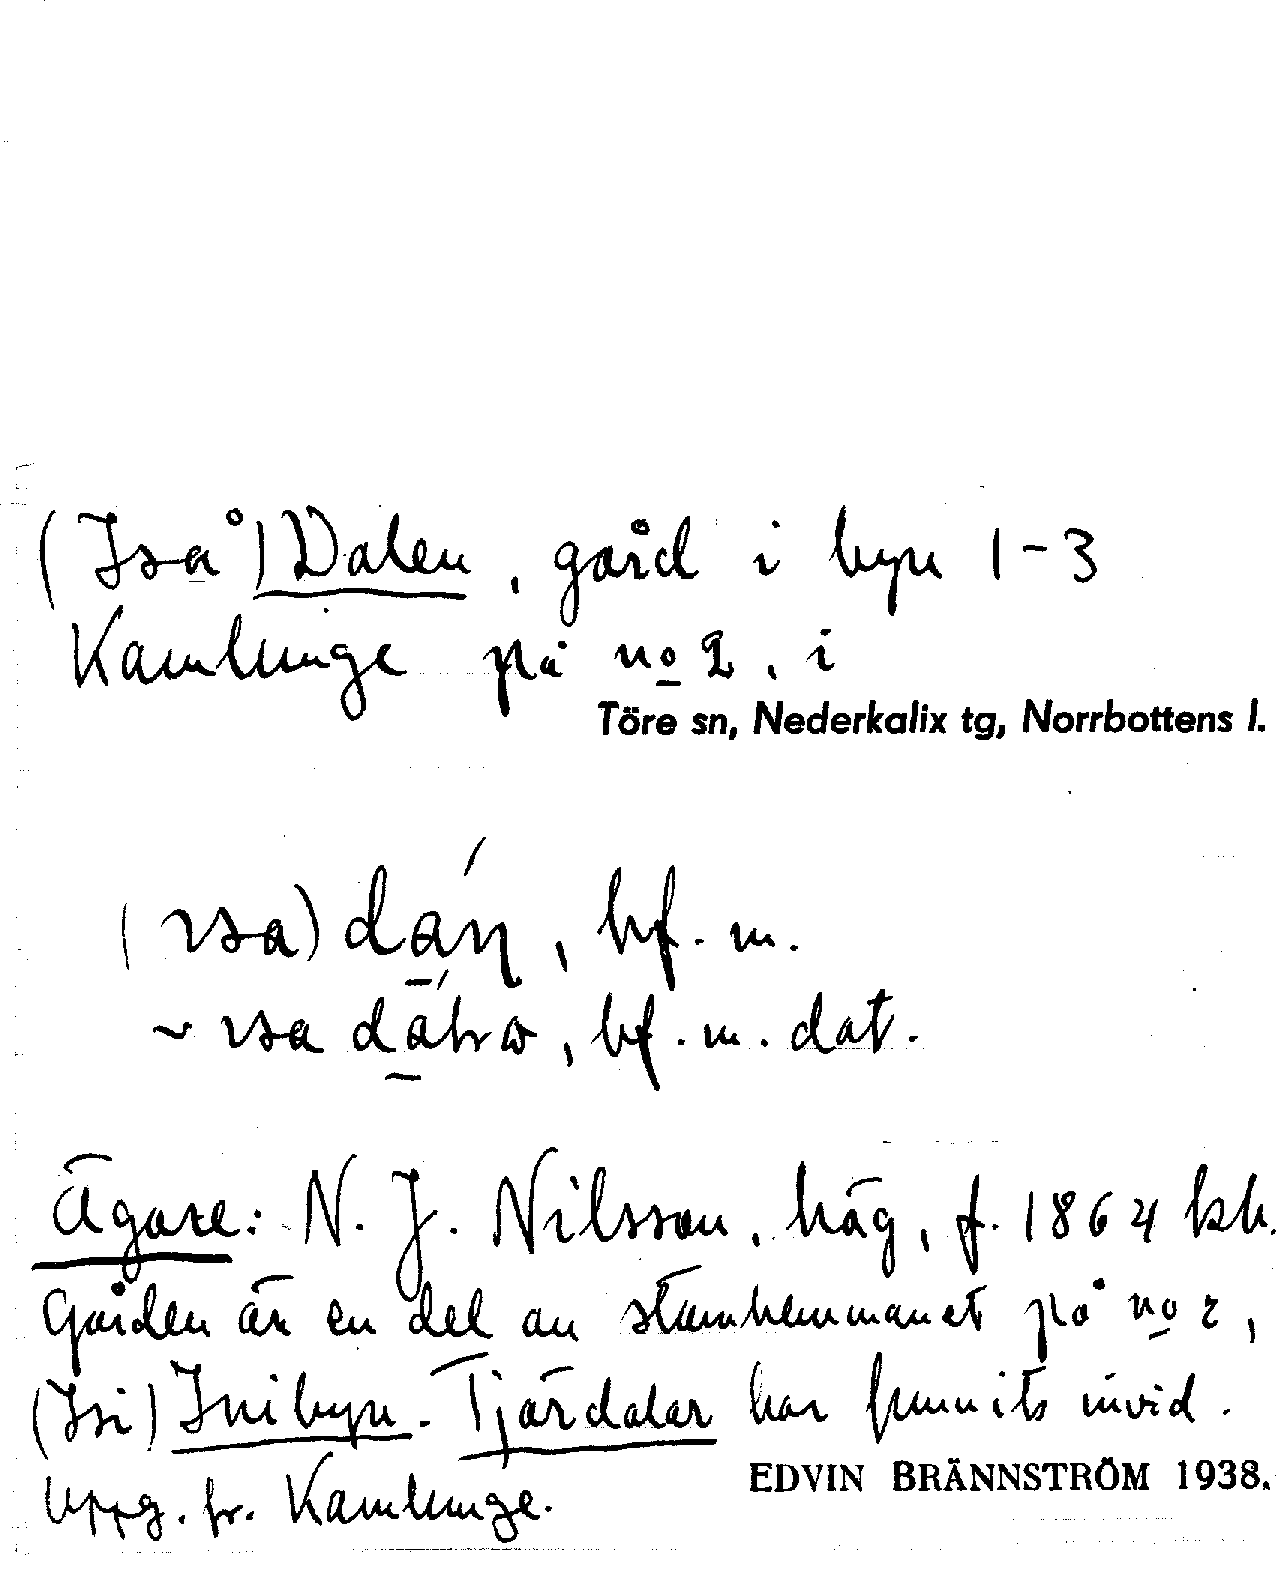 (Iså) Dalen, gård i byn 1-3
Kamlunge på no 2, i
Töre sn, Nederkalix tg, Norrbottens l.
bf. m.
bf. m. dat.
Ägare: N. J. Nilsson, häg, f. 1864 kb.
Gården är en del av stamhemmanet på no 2,
(Isi) Inibyn. Tjärdalar har funnits invid.
Uppg. fr. Kamlunge.
EDVIN BRÄNNSTRÖM 1938.